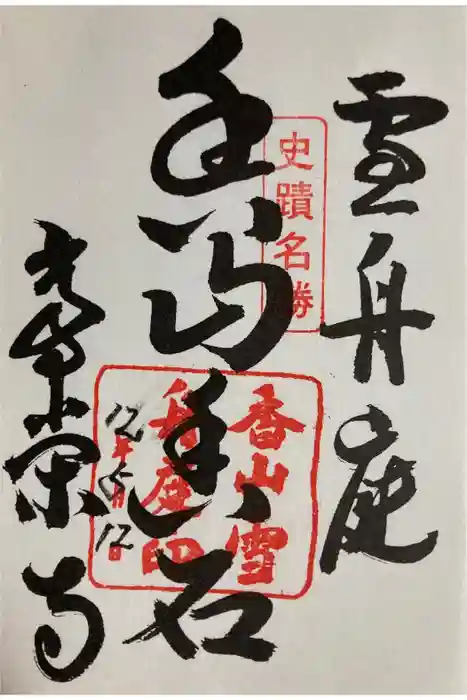 雪舟庭
史蹟名勝
石
香山雪
舟庭印
12年5月12日
常榮寺